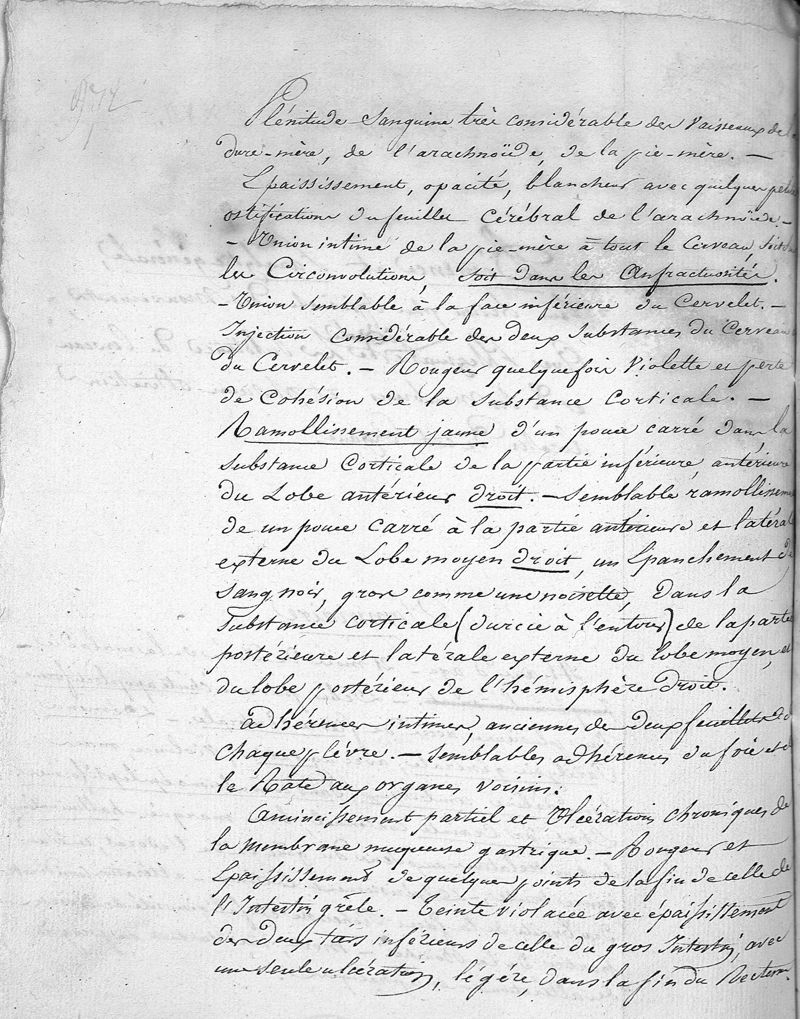 Plénitude sanguine très considérable des vaisseaux de la
dure-mère, de l'arachnoïde, de la pie-mère. —
Epaississement, opacité, blancheur avec quelques petites
ossifications du feuillet cérébral de l'arachnoïde. —
— Union intime de la pie-mère à tout le Cerveau, soit dans
les Circonvolutions, soit dans les Anfractuosités.
— Union semblable à la face inférieure du Cervelet. —
Injection considérable des deux substances du Cerveau
du Cervelet. — Rougeur quelquefois violette et perte
de cohésion de la substance corticale. —
Ramollissement jaune d'un pouce carré dans la
substance corticale de la partie inférieure, antérieure
du Lobe antérieur droit. — Semblable ramollissement
de un pouce carré à la partie antérieure et latérale
externe du Lobe moyen droit, un Epanchement de
sang noir, gros comme une noisette, dans la
substance corticale (durcie à l'entour) de la partie
postérieure et latérale externe du lobe moyen, et
du lobe postérieur de l'hémisphère droit.
adhérences intimes, anciennes des deux feuillets de
chaque plèvre. — Semblables adhérences du foie et de
la Rate aux organes voisins.
Amincissement partiel et Ulcérations chroniques de
la membrane muqueuse gastrique. — Rougeur et
Epaississement de quelques points de la fin de celle de
l'Intestin grêle. — Teinte violacée avec épaississement
des deux tiers inférieurs de celle du gros Intestin, avec
une seule ulcération, légère, dans la fin du Rectum.